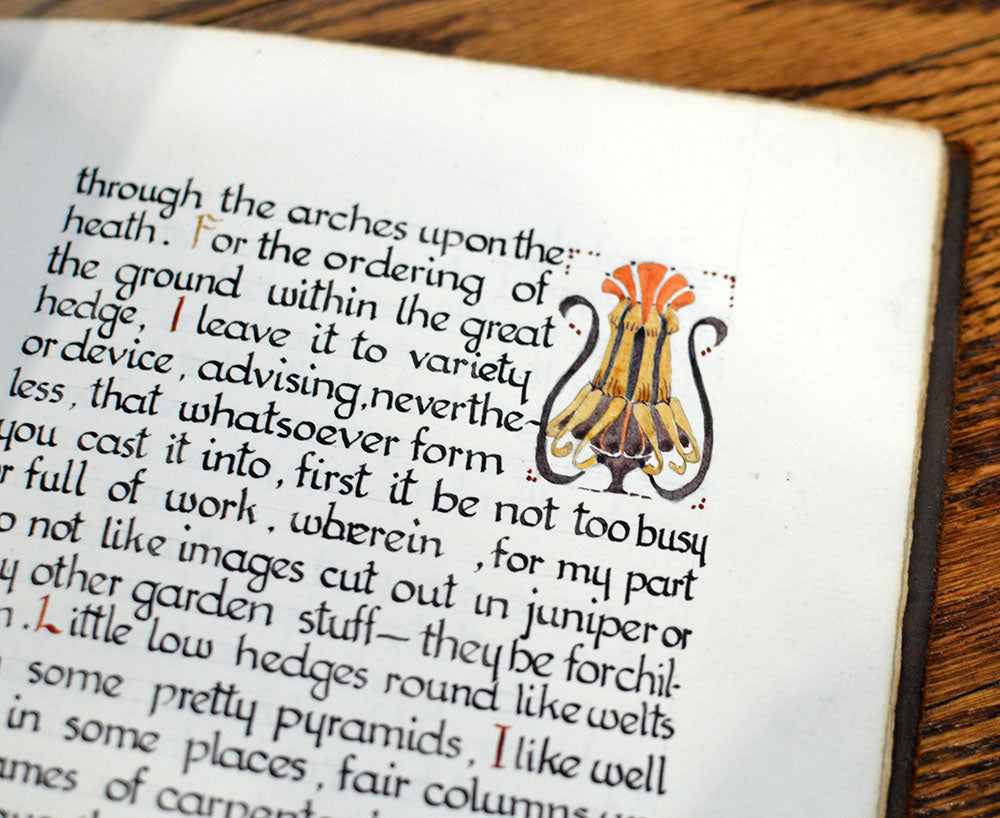 through the arches upon the
heath. For the ordering of
the ground within the great
hedge, I leave it to variety
or device, advising, neverthe-
less, that whatsoever form
you cast it into, first it be not too busy
r full of work, wherein , for my part
o not like images cut out in juniper or
y other garden stuff— they be for chil-
n. Little low hedges round like welts
some pretty pyramids, I like well
in some places, fair columns
ames of